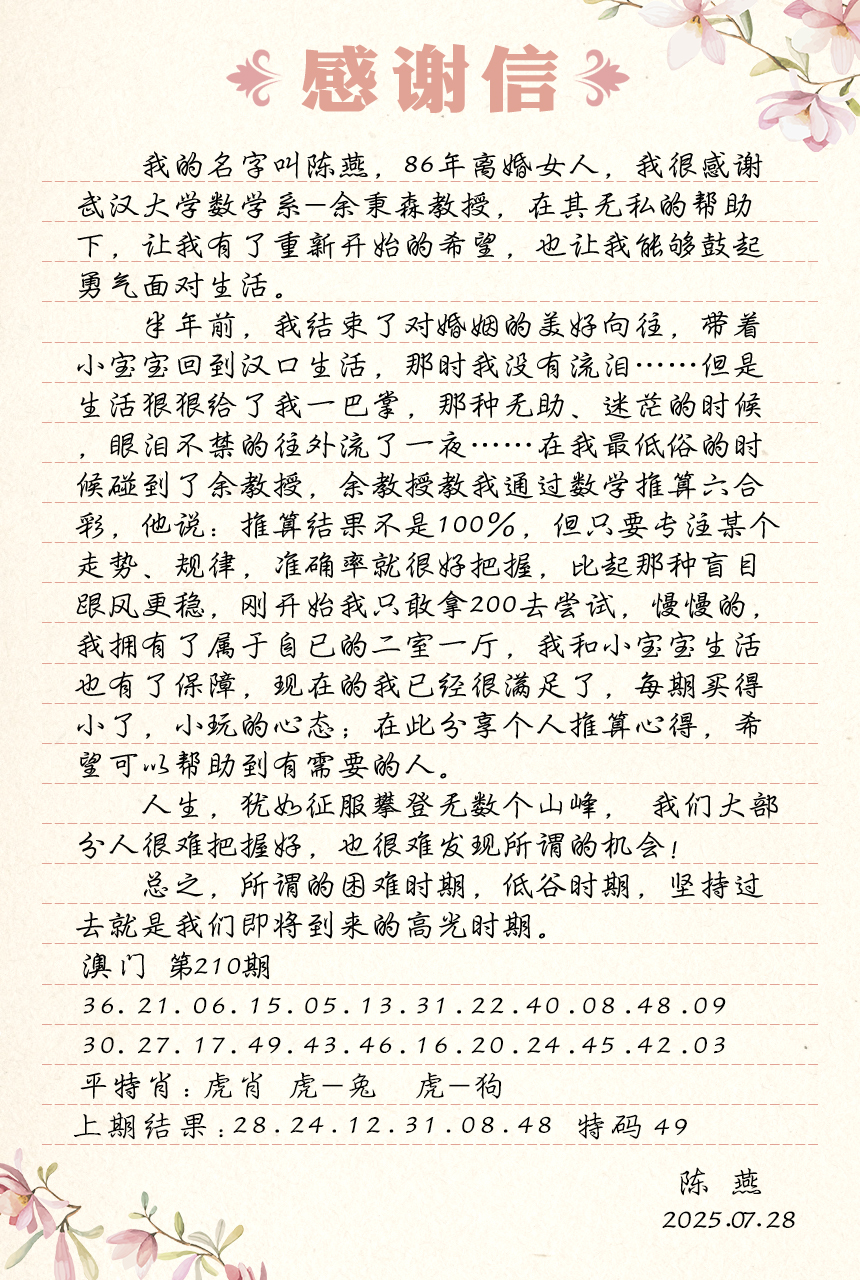 感谢信
我的名字叫陈燕，86年离婚女人，我很感谢
武汉大学数学系—余秉森教授，在其无私的帮助
下，让我有了重新开始的希望，也让我能够鼓起
勇气面对生活。
半年前，我结束了对婚姻的美好向往，带着
小宝宝回到汉口生活，那时我没有流泪……但是
生活狠狠给了我一巴掌，那种无助、迷茫的时候
，眼泪不禁的往外流了一夜……在我最低俗的时
候碰到了余教授，余教授教我通过数学推算六合
彩，他说：推算结果不是100%，但只要专注某个
走势、规律，准确率就很好把握，比起那种盲目
跟风更稳，刚开始我只敢拿200去尝试，慢慢的，
我拥有了属于自已的二室一厅，我和小宝宝生活
也有了保障，现在的我已经很满足了，每期买得
小了，小玩的心态；在此分享个人推算心得，希
望可以帮助到有需要的人。
人生，犹如征服攀登无数个山峰， 我们大部
分人很难把握好，也很难发现所谓的机会！
总之，所谓的困难时期，低谷时期，坚持过
去就是我们即将到来的高光时期。
澳门 第210期
36.21.06.15.05.13.31.22.40.08.48.09
30.27.17.49.43.46.16.20.24.45.42.03
平特肖：虎肖 虎—兔 虎—狗
上期结果：28.24.12.31.08.48 特码 49
陈 燕
2025.07.28